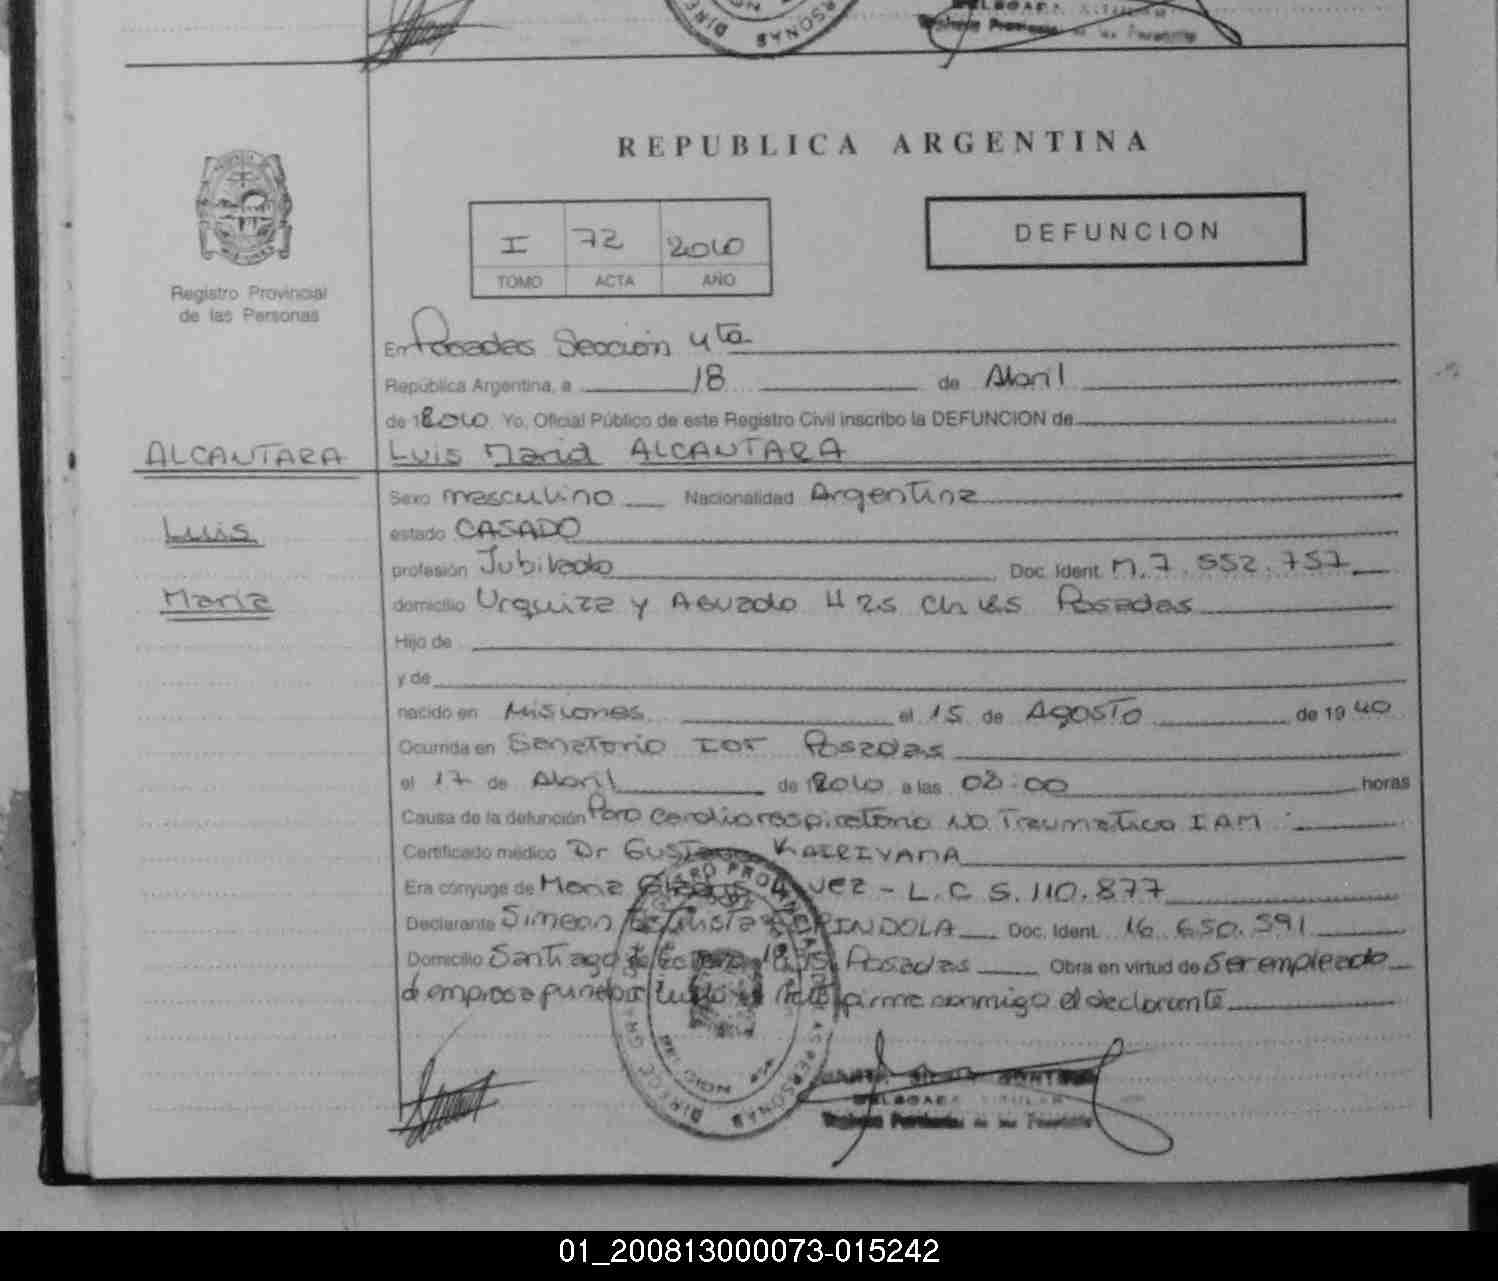 REPUBLICA ARGENTINA
I 72 2010
TOMO ACTA AÑO
DEFUNCION
Registro Provincial
de las Personas
En Posadas Sección 4ta
República Argentina, a 18 de Abril
de 2010 Yo, Oficial Público de este Registro Civil inscribo la DEFUNCION de
ALCANTARA Luis Maria ALCANTARA
Sexo masculino Nacionalidad Argentina
Luis
estado CASADO
profesión Jubilado Doc. Ident. M. 7.552.757
Maria
domicilio Urquiza y Aguado Posadas
Hijo de
y de
nacido en Misiones el 15 de Agosto de 1940
Ocurrida en Sanatorio IOT Posadas
el 17 de Abril de 2010 a las 08:00 horas
Causa de la defunción Paro cardiorespiratorio No Traumatico IAM
Certificado médico Dr Gustavo
Era cónyuge de L.C. 5.110.877
Declarante Simeon Doc. Ident. 16.650.591
Domicilio Santiago Posadas Obra en virtud de Ser empleado
de empresa firma conmigo el declarante
DELEGADA TITULAR
01_200813000073-015242